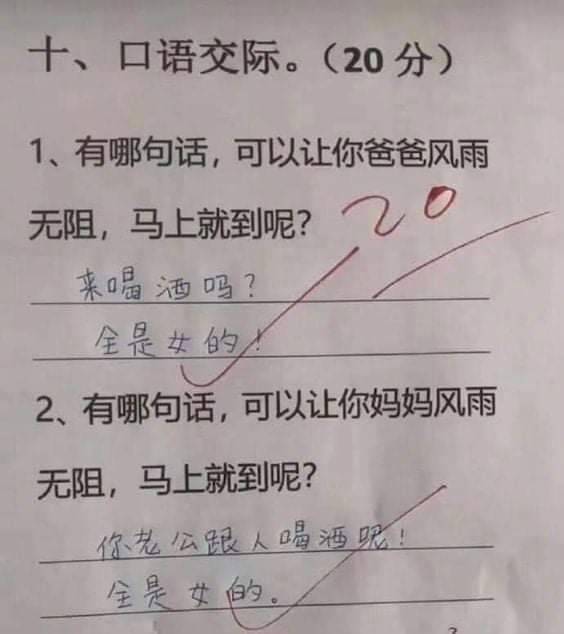 十、口语交际。（20 分）
1、有哪句话，可以让你爸爸风雨
无阻，马上就到呢？
20
来喝酒吗？
全是女的！
2、有哪句话，可以让你妈妈风雨
无阻，马上就到呢？
你老公跟人喝酒呢！
全是女的。